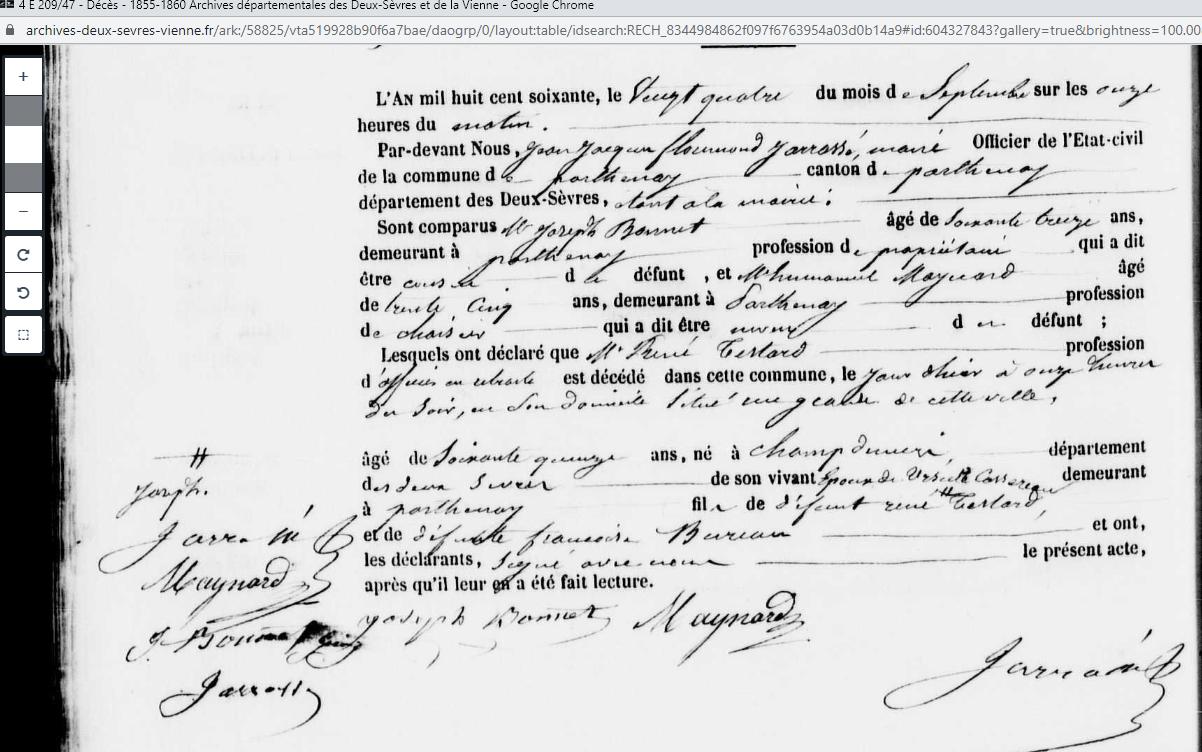 4 E 209/47 - Décès - 1855-1860 Archives départementales des Deux-Sèvres et de la Vienne - Google Chrome
archives-deux-sevres-vienne.fr/ark:/58825/vta519928b90f6a7bae/daogrp/0/layout:table/idsearch:RECH_8344984862f097f6763954a03d0b14a9#id:604327843?gallery=true&brightness=100.00
L'AN mil huit cent soixante, le Vingt quatre du mois de Septembre sur les onze
heures du matin.
Par-devant Nous, Jean Jacques Jarrassé, maire Officier de l'Etat-civil
de la commune de parthenay canton de parthenay
département des Deux-Sèvres, étant à la mairie;
Sont comparus Mr Joseph Bonnet âgé de Soixante treize ans,
demeurant à parthenay profession de propriétaire qui a dit
être cousin du défunt, et Mr Maynard âgé
de trente Cinq ans, demeurant à Parthenay profession
de chaisier qui a dit être neveu du défunt;
Lesquels ont déclaré que Mr René Testard profession
d'officier en retraite est décédé dans cette commune, le jour d'hier à onze heures
du Soir, en Son domicile Situé de cette ville,
âgé de Soixante quinze ans, né à champdeniers, département
des deux Sevres de son vivant Epoux de Ursule demeurant
à parthenay fils de défunt rené # Testard,
et de défunte francoise Bureau et ont,
les déclarants, Signé avec nous le présent acte,
après qu'il leur en a été fait lecture.
#
Joseph.
Jarrassé
Maynard
J. Bonnet
Jarrassé
Joseph Bonnet Maynard
Jarrassé